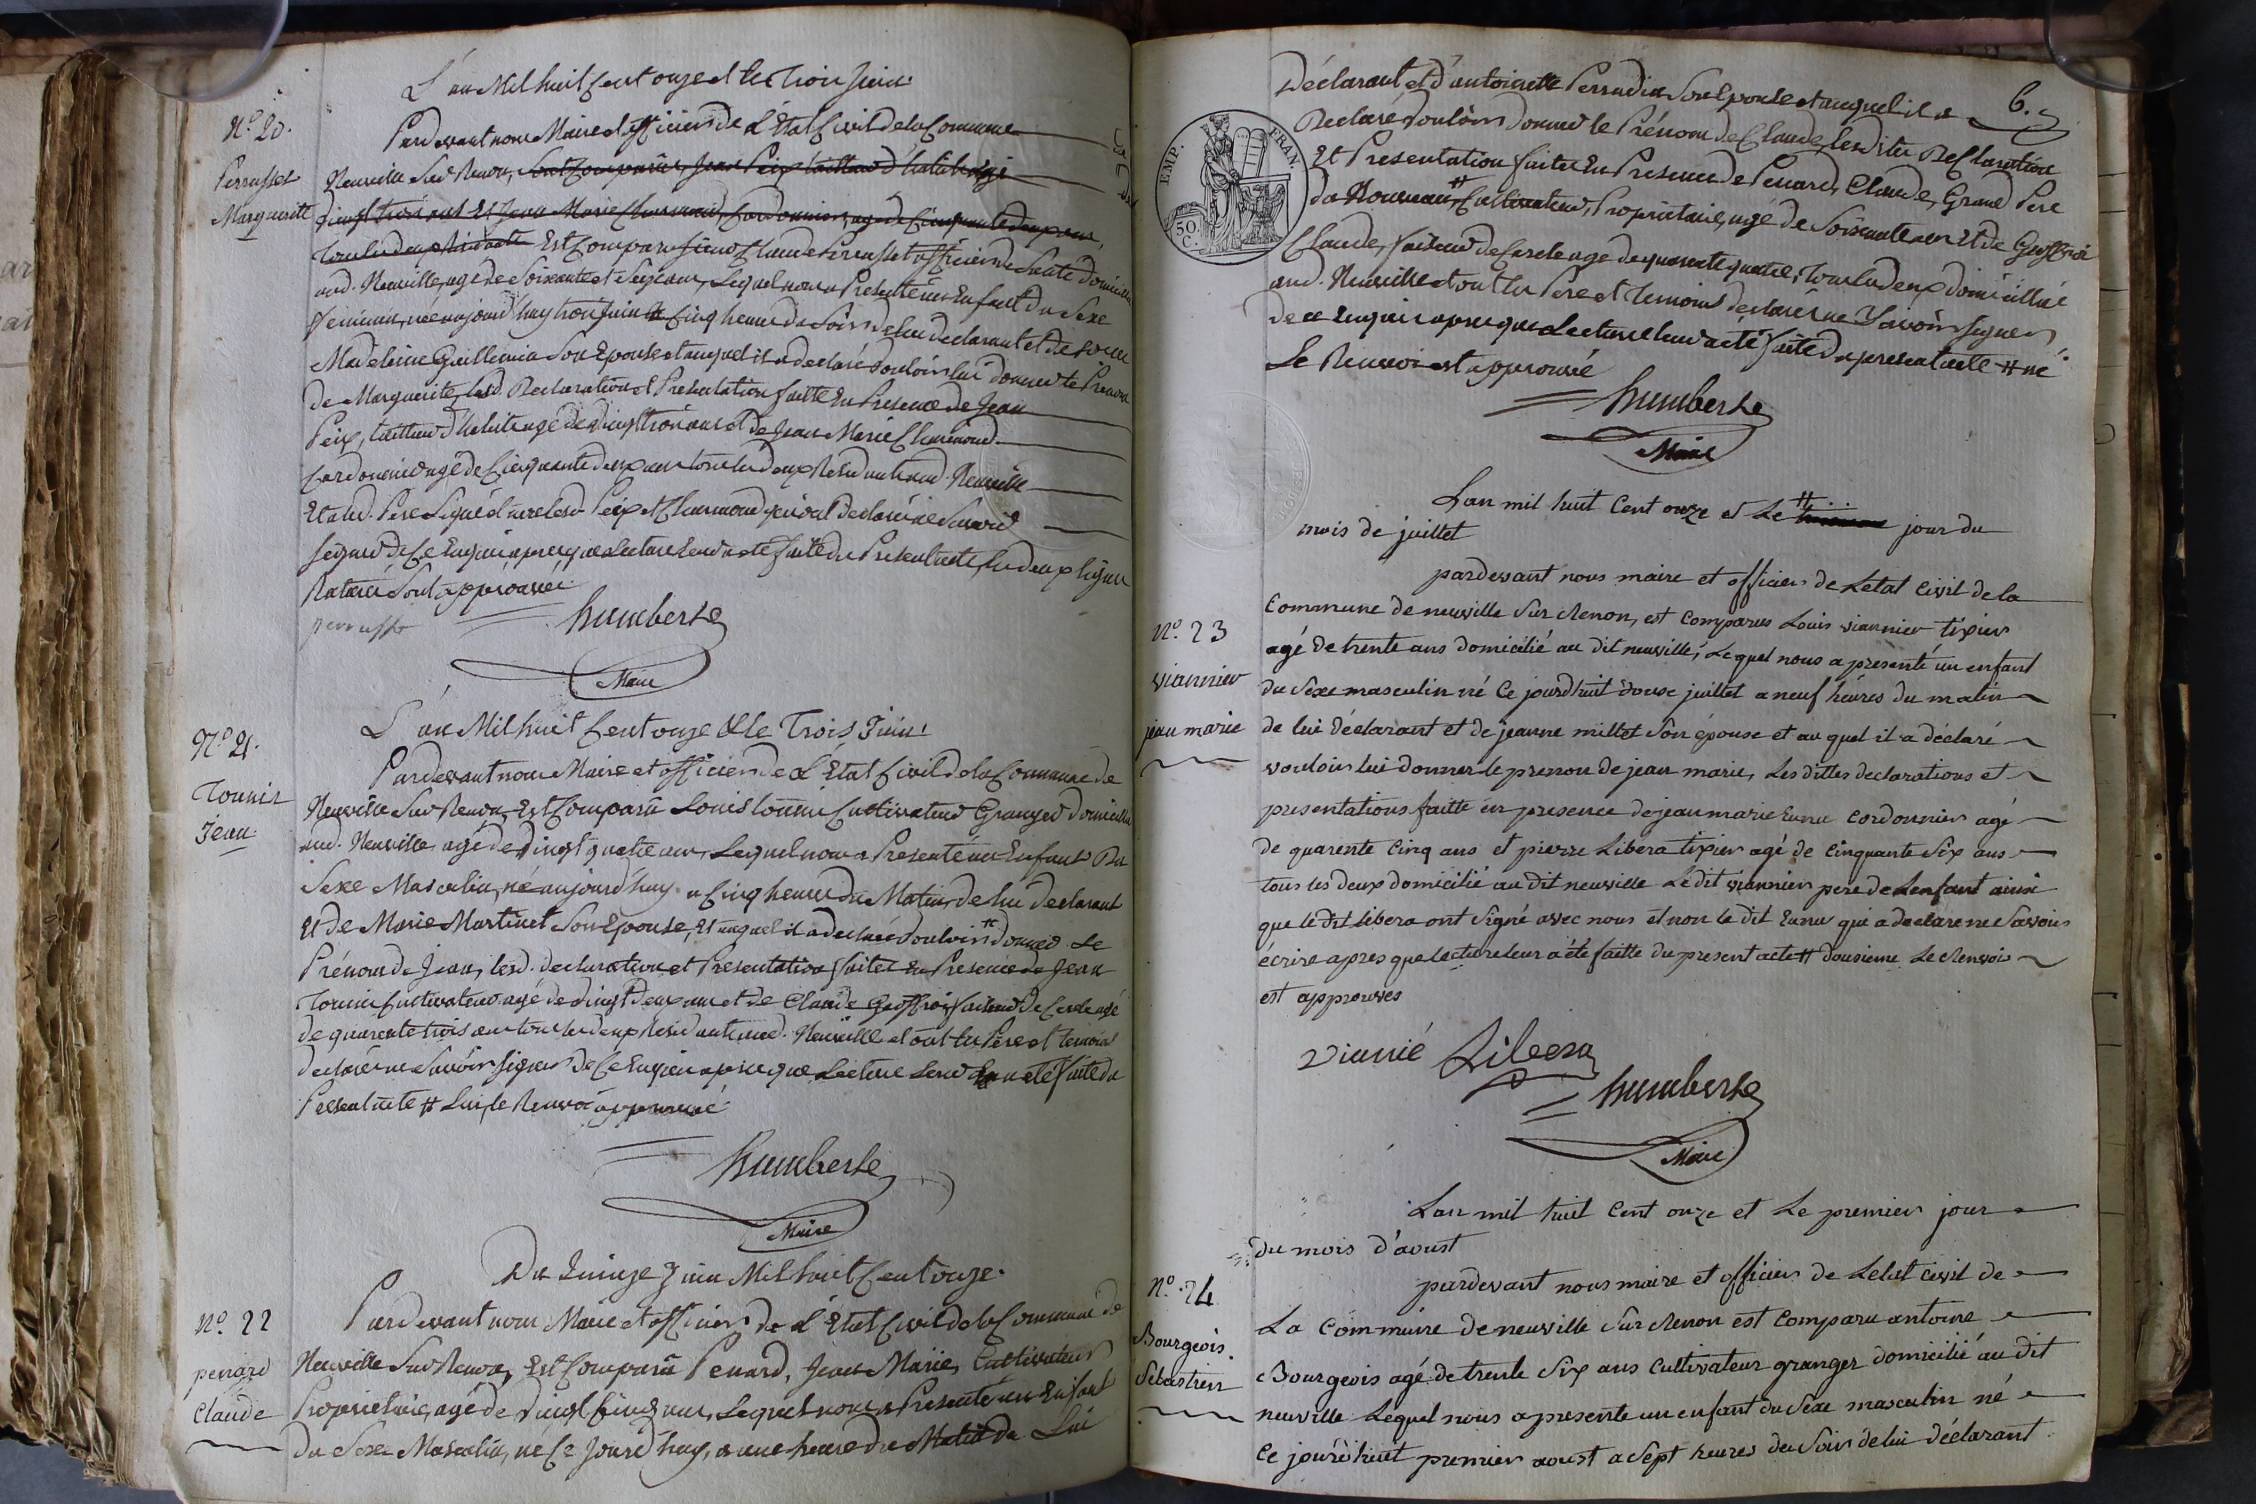 L'an Mil huit Cent onze et le Trois Juin
N.º 20.
Perrusset
Marguerite
Pardevant nous Maire et officier de L'État Civil de la Commune
Neuville Sur Renon, sont comparus Jean Peix tailleur d'habit agé
vingt trois ans Et Jean Marie Charmond, Cordonnier, agé de Cinquante deux ans,
tous les deux Est Comparu Claude Perrusset officier de Santé domicilié
aud. Neuville, agé de Soixante et ans, Lequel nous a Presenté un Enfant du Sexe
feminin, née aujourd'huy trois juin a Cinq heures du Soir de lui declarant et de
Madeleine Guillemin Son Epouse et auquel il a declaré vouloir lui donner le Prenom
de Marguerite, lesd. Declaration et Presentation faitte En Presence de Jean
Peix, tailleur d'habit agé de vingt trois ans et de Jean Marie Charmond
Cordonnier agé de Cinquante deux ans tous les deux Residant aud. Neuville
Et aled. Pere Signé Peix et Charmond qui ont declaré ne Savoir
signer de Ce Enquis, apres que Lecture Leur a été faite du Present acte, les deux lignes
Raturé Sont approuvée
perrusset
humberte
Maire
L'an Mil huit Cent onze & le Trois Juin
N.º 21.
Tounir
Jean
Pardevant nous Maire et officier de L'État Civil de la Commune de
Neuville Sur Renon, Est Comparu Louis Cultivateur Granger domicilié
aud. Neuville agé de vingt quatre ans, Lequel nous a Presenté un Enfant Du
Sexe Masculin, né aujourd'huy a Cinq heures du Matin, de lui declarant
Et de Marie Martinet Son Epouse, Et auquel il a declaré vouloir # donner Le
Prénom de Jean, lesd. declaration et Presentation faites En Presence de Jean
Cultivateur agé de vingt deux ans et de Claude Geoffroi faiseur de Cercle agé
de quarente trois ans tous les deux Residant aud. Neuville et ont les Pere et temoins
declaré ne Savoir Signer de Ce Enquis apres que Lecture Leur a été faite du
Present acte # Lui, le Renvoi approuvé
humberte
Maire
Du Quinze Juin Mil huit Cent onze.
N.º 22
penard
Claude
Pardevant nous Maire et officier de L'État Civil de la Commune de
Neuville Sur Renon, Est Comparu Penard, Jean Marie, Cultivateur
Proprietaire, agé de vingt Cinq ans, Lequel nous a Presenté un Enfant
du Sexe Masculin, né Ce Jourd'huy, a une heure du Matin de Lui
6.
Déclarant, et d'antoinette Perradin Son Epouse et auquel il a
Declaré Vouloir donner le Prénom de Claude, lesdites Declaration
Et Presentation faites En Presence de Penard, Claude, Grand Pere
du Nouveau # Cultivateur, Proprietaire, agé de Soixante ans Et de Geoffroi
Claude, faiseur de Cercle agé de quarente quatre, tous les deux domicillié
aud. Neuville et ont les Pere et temoins declaré ne Savoir signer
de ce Enquis apres que Lecture leur a été faite du present acte # né
Le Renvoi est approuvé
EMP. FRAN.
50 C.
humberte
Maire
Lan mil huit Cent onze et Le # jour du
mois de juillet
N.º 23
viannier
jean marie
pardevant nous maire et officier de Letat Civil de la
Commune de neuville Sur Renon, est Comparus Louis viannier tixier
agé de trente ans domicilié au dit neuville, Lequel nous a presenté un enfant
du Sexe masculin né Ce jourdhuit douse juillet a neuf heures du matin
de lui déclarant et de jeanne millet Son épouse et au quel il a déclaré
vouloir lui donner le prenon de jean marie, Les dittes declarations et
presentations faitte en presence de jean marie Cordonnier agé
de quarente Cinq ans et pierre Libera tixier agé de Cinquante Six ans
tous les deux domicilié au Dit neuville Le dit viannier pere de Lenfant ainsi
que le Dit Libera ont Signé avec nous et non le dit qui a declare ne Savoir
écrire apres que Lecture leur a été faitte du present acte # dousieme Le Renvoi
est approuves
Vianié Libera
humberte
Maire
Lan mil huit Cent onze et Le premier jour
du mois d'aoust
N.º 24
Bourgeois
Sebastien
pardevant nous maire et officier de Letat Civil de
La Commune de neuville Sur Renon est Comparu antoine
Bourgeois agé de trente Six ans Cultivateur granger domicilié au dit
neuville Lequel nous a presente un enfant du Sexe masculin né
Ce jourdhuit premier aoust a Sept heures du Soir de lui déclarant